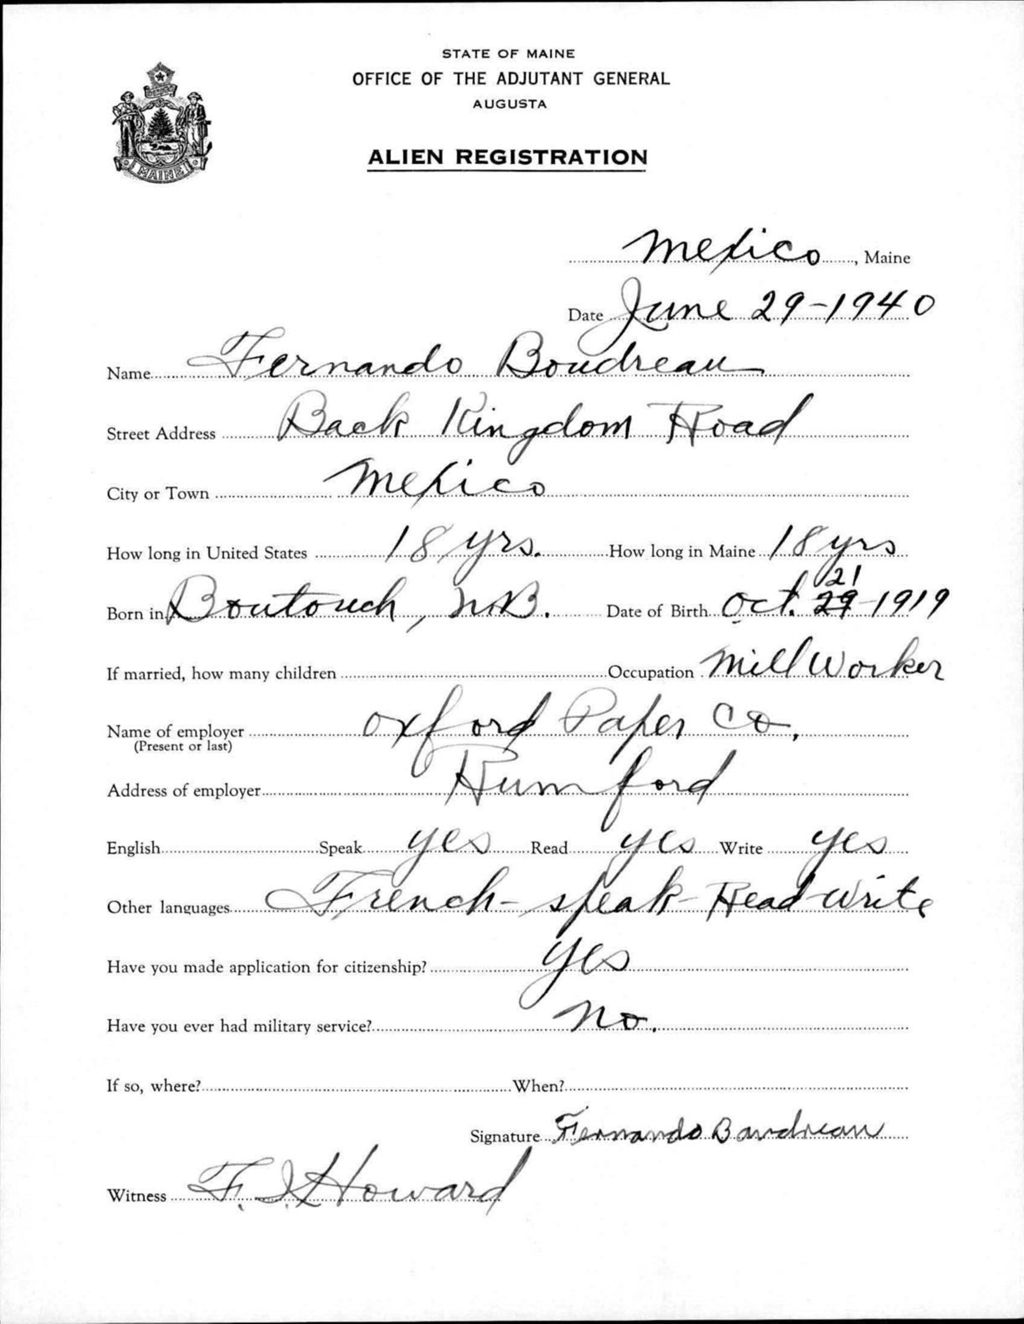 STATE OF MAINE
OFFICE OF THE ADJUTANT GENERAL
AUGUSTA
ALIEN REGISTRATION
MAINE
Mexico, Maine
Date June 29-1940
Name Fernando Boudreau
Street Address Back Kingdom Road
City or Town Mexico
How long in United States 18 yrs. How long in Maine 18 yrs
21
Born in Boutouch, N.B. Date of Birth Oct. 29 1919
If married, how many children Occupation Mill Worker
Name of employer Oxford Paper Co.
(Present or last)
Address of employer Rumford
English Speak yes Read yes Write yes
Other languages French - speak - Read - write
Have you made application for citizenship? yes
Have you ever had military service? no.
If so, where? When?
Signature Fernando Boudreau
Witness F. J. Howard